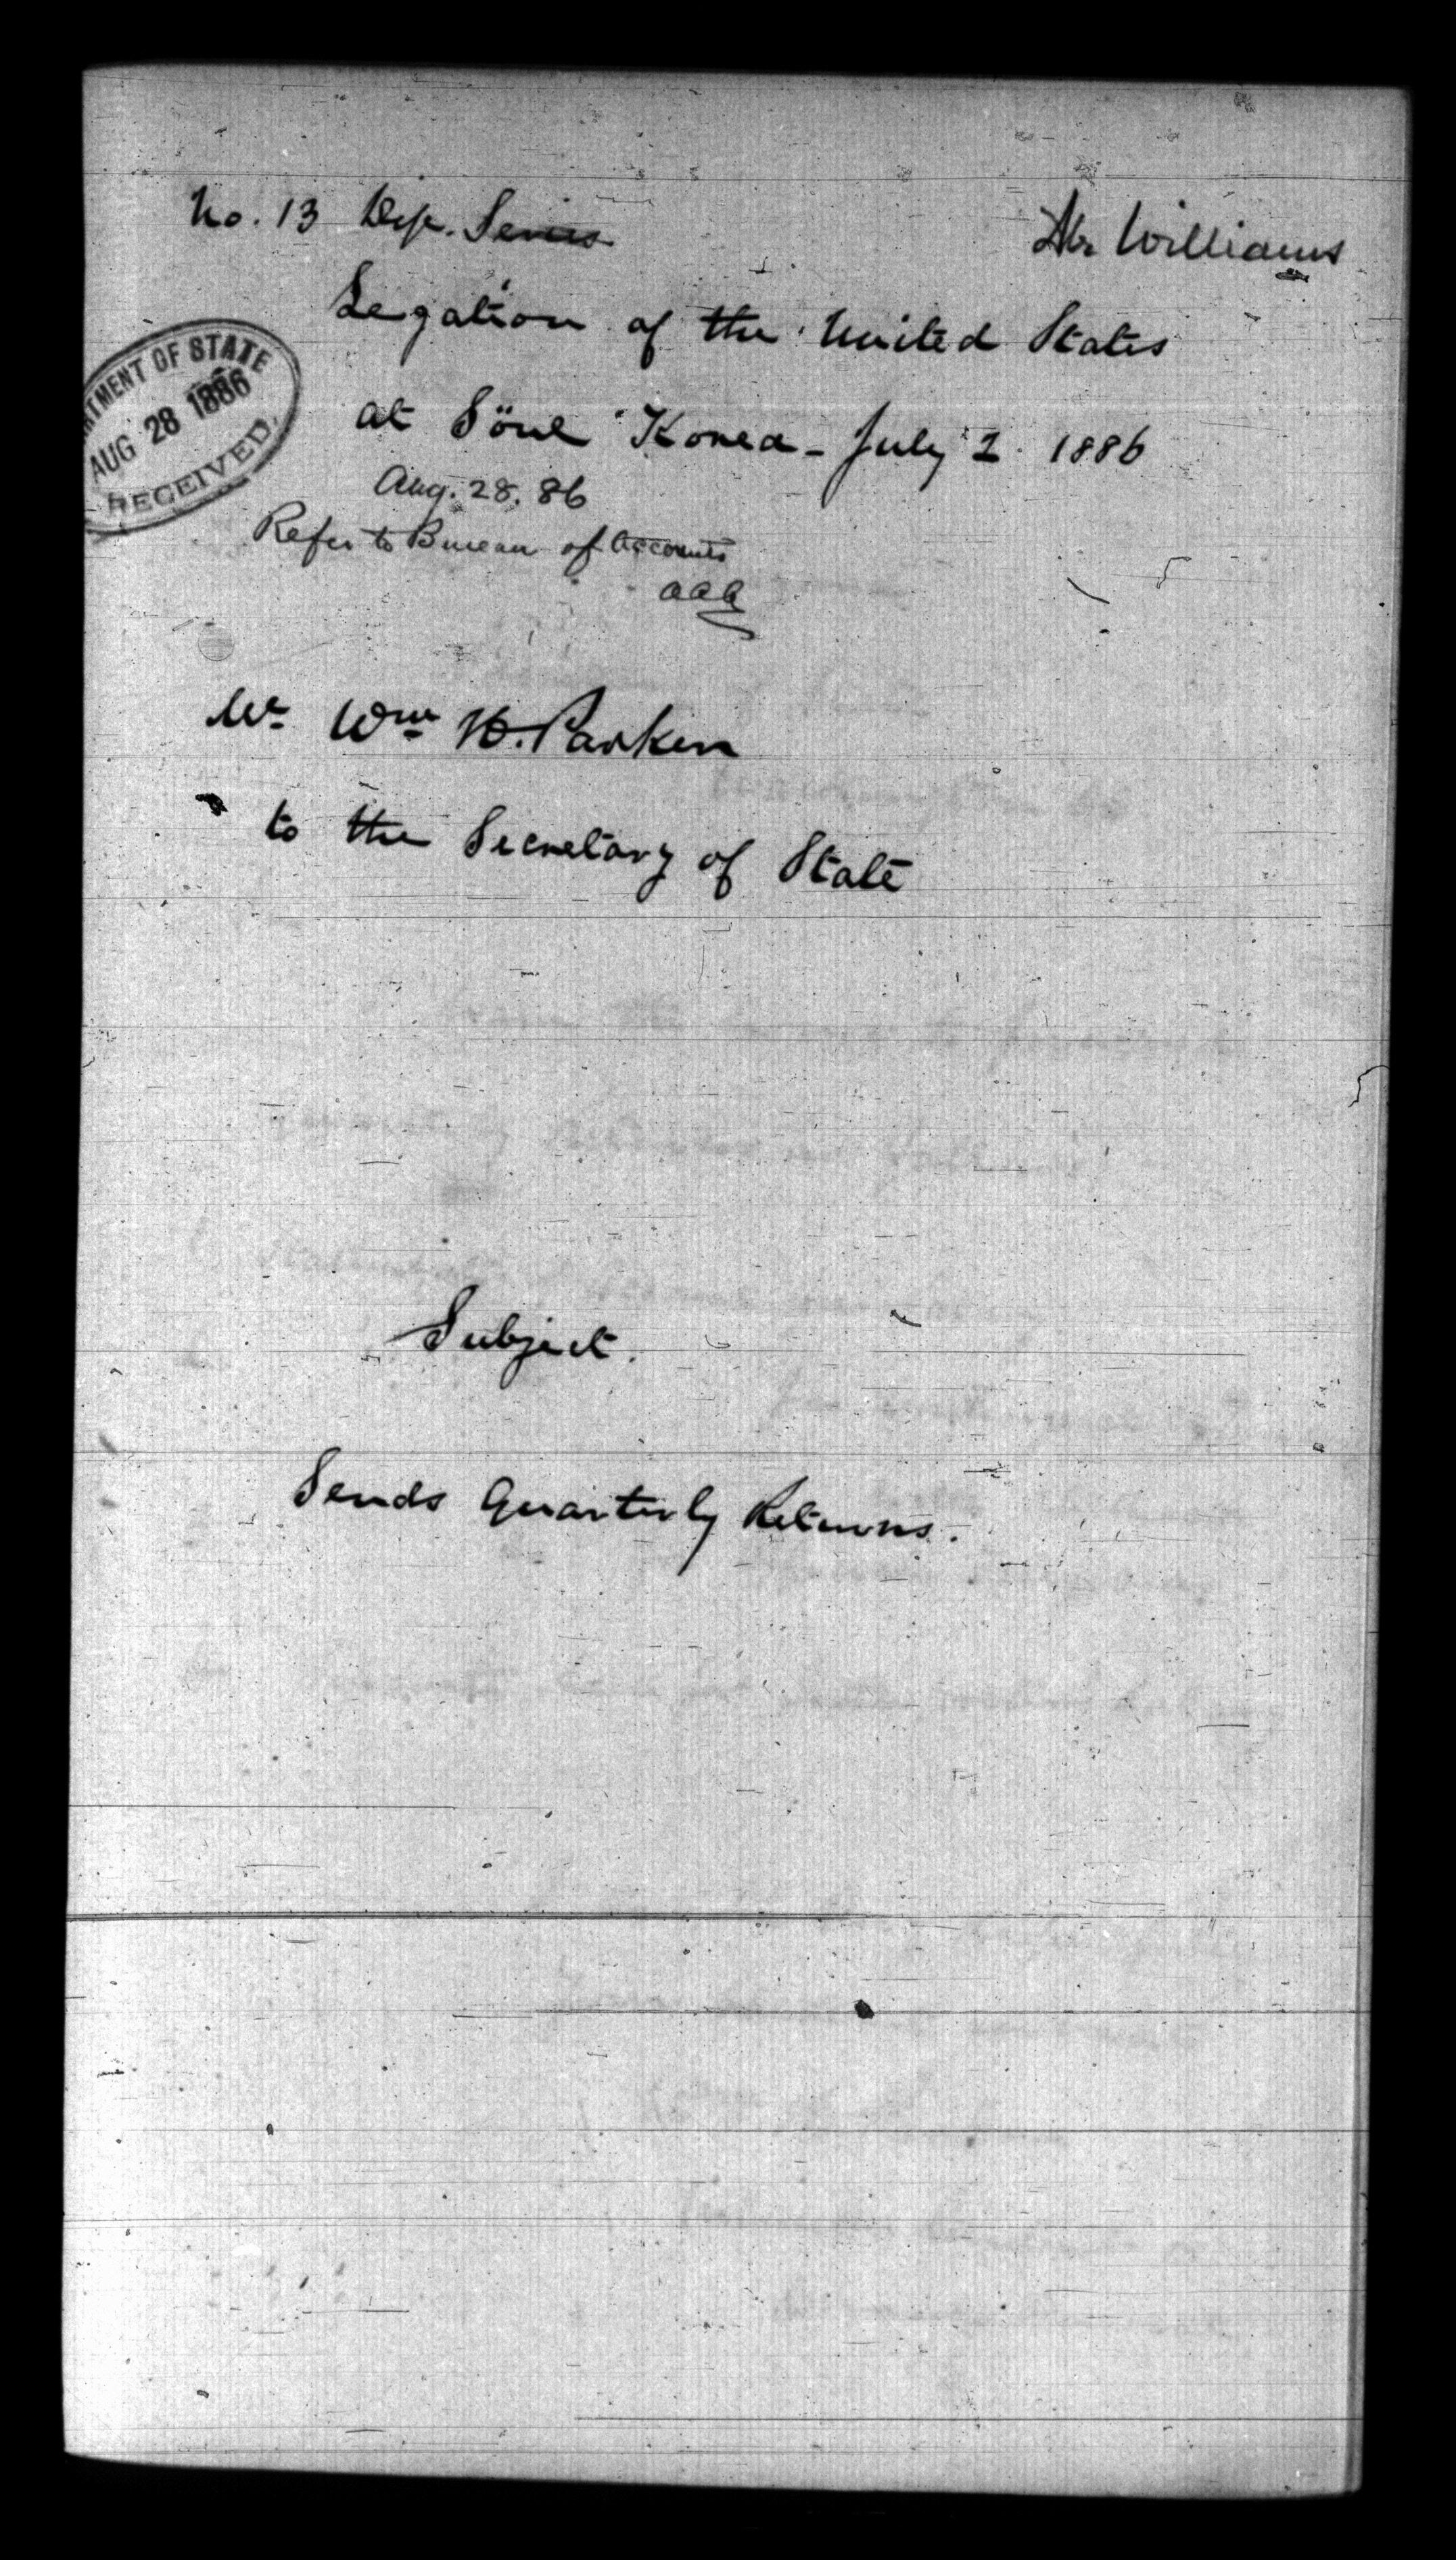 No. 13 Dip. Series
Mr Williams
Legation of the United States
at Söul Korea - July 2 1886
DEPARTMENT OF STATE
AUG 28 1886
RECEIVED.
Aug. 28. 86
Refer to Bureau of Accounts
AAA
Mr Wm H. Parker
to the Secretary of State
Subject.
Sends Quarterly Returns.